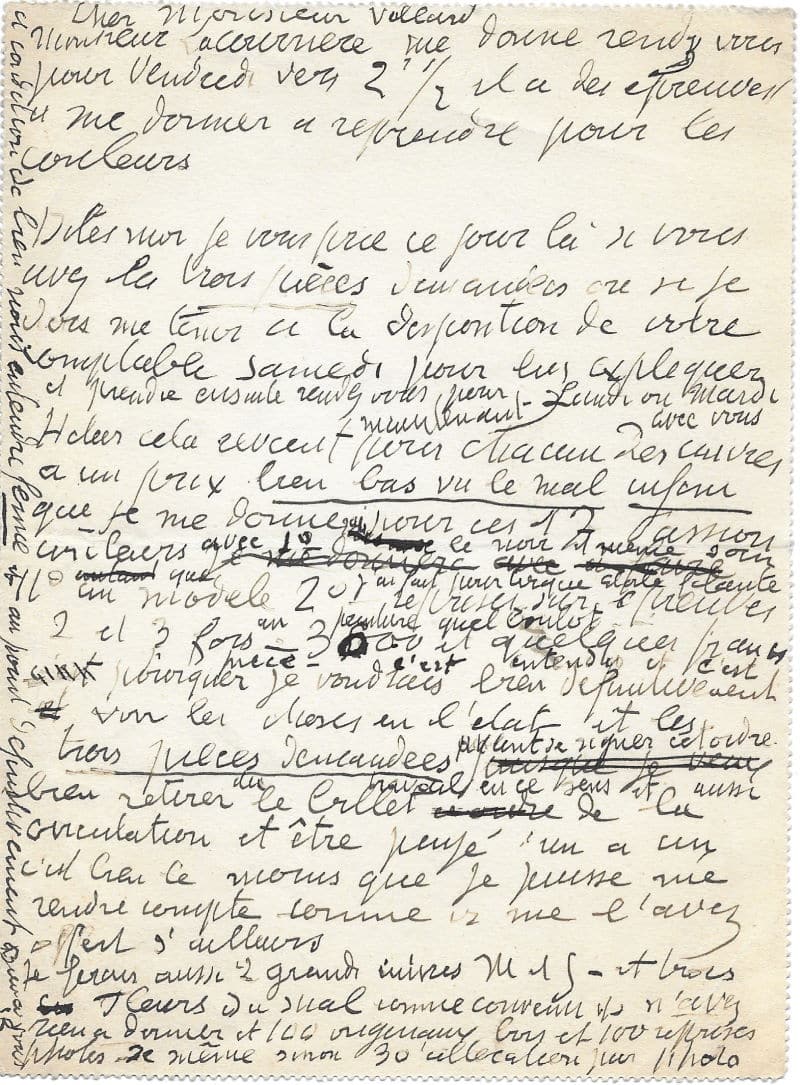 Cher Monsieur Vollard
Monsieur Lacourière me donne rendez vous
pour Vendredi vers 2 1/2 il a des épreuves
a me donner a reprendre pour les
couleurs
Dites moi je vous prie ce jour là si vous
avez les trois pièces demandées ou si je
dois me tenir a la disposition de votre
comptable samedi pour lui expliquer
et prendre ensuite rendez vous pour Lundi ou Mardi
maintenant avec vous
Hélas cela revient pour chacun des cuivres
a un prix bien bas vu le mal
que je me donne pour ces 17 Passion
couleurs avec 10 le noir et même soin
10 que
un modèle 20 reprises sur épreuves
2 et 3 fois 3000 et quelques francs
pièce c'est entendu et c'est
pourquoi je voudrais bien définitivement
voir les choses en l'état et les
trois pièces demandées avant de signer cet ordre
du travail en ce sens et aussi
bien retirer le billet de la
circulation et être payé un a un
c'est bien le moins que je puisse me
rendre compte comme me l'avez
offert d'ailleurs
Je ferais aussi 2 grands cuivres M et G - et trois
Fleurs du mal comme convenu n'avez
rien a donner et 100 originaux bois et 100 reprises
photos de même sinon 30 allocation par photo
a condition de bien nous entendre ferme et au point définitivement